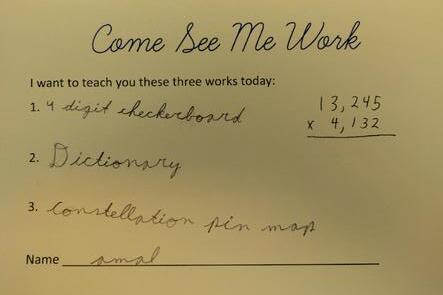 Come See Me Work
I want to teach you these three works today:
1. 4 digit checkerboard
13,245
x 4,132
2. Dictionary
3. Constellation pin map
Name amal